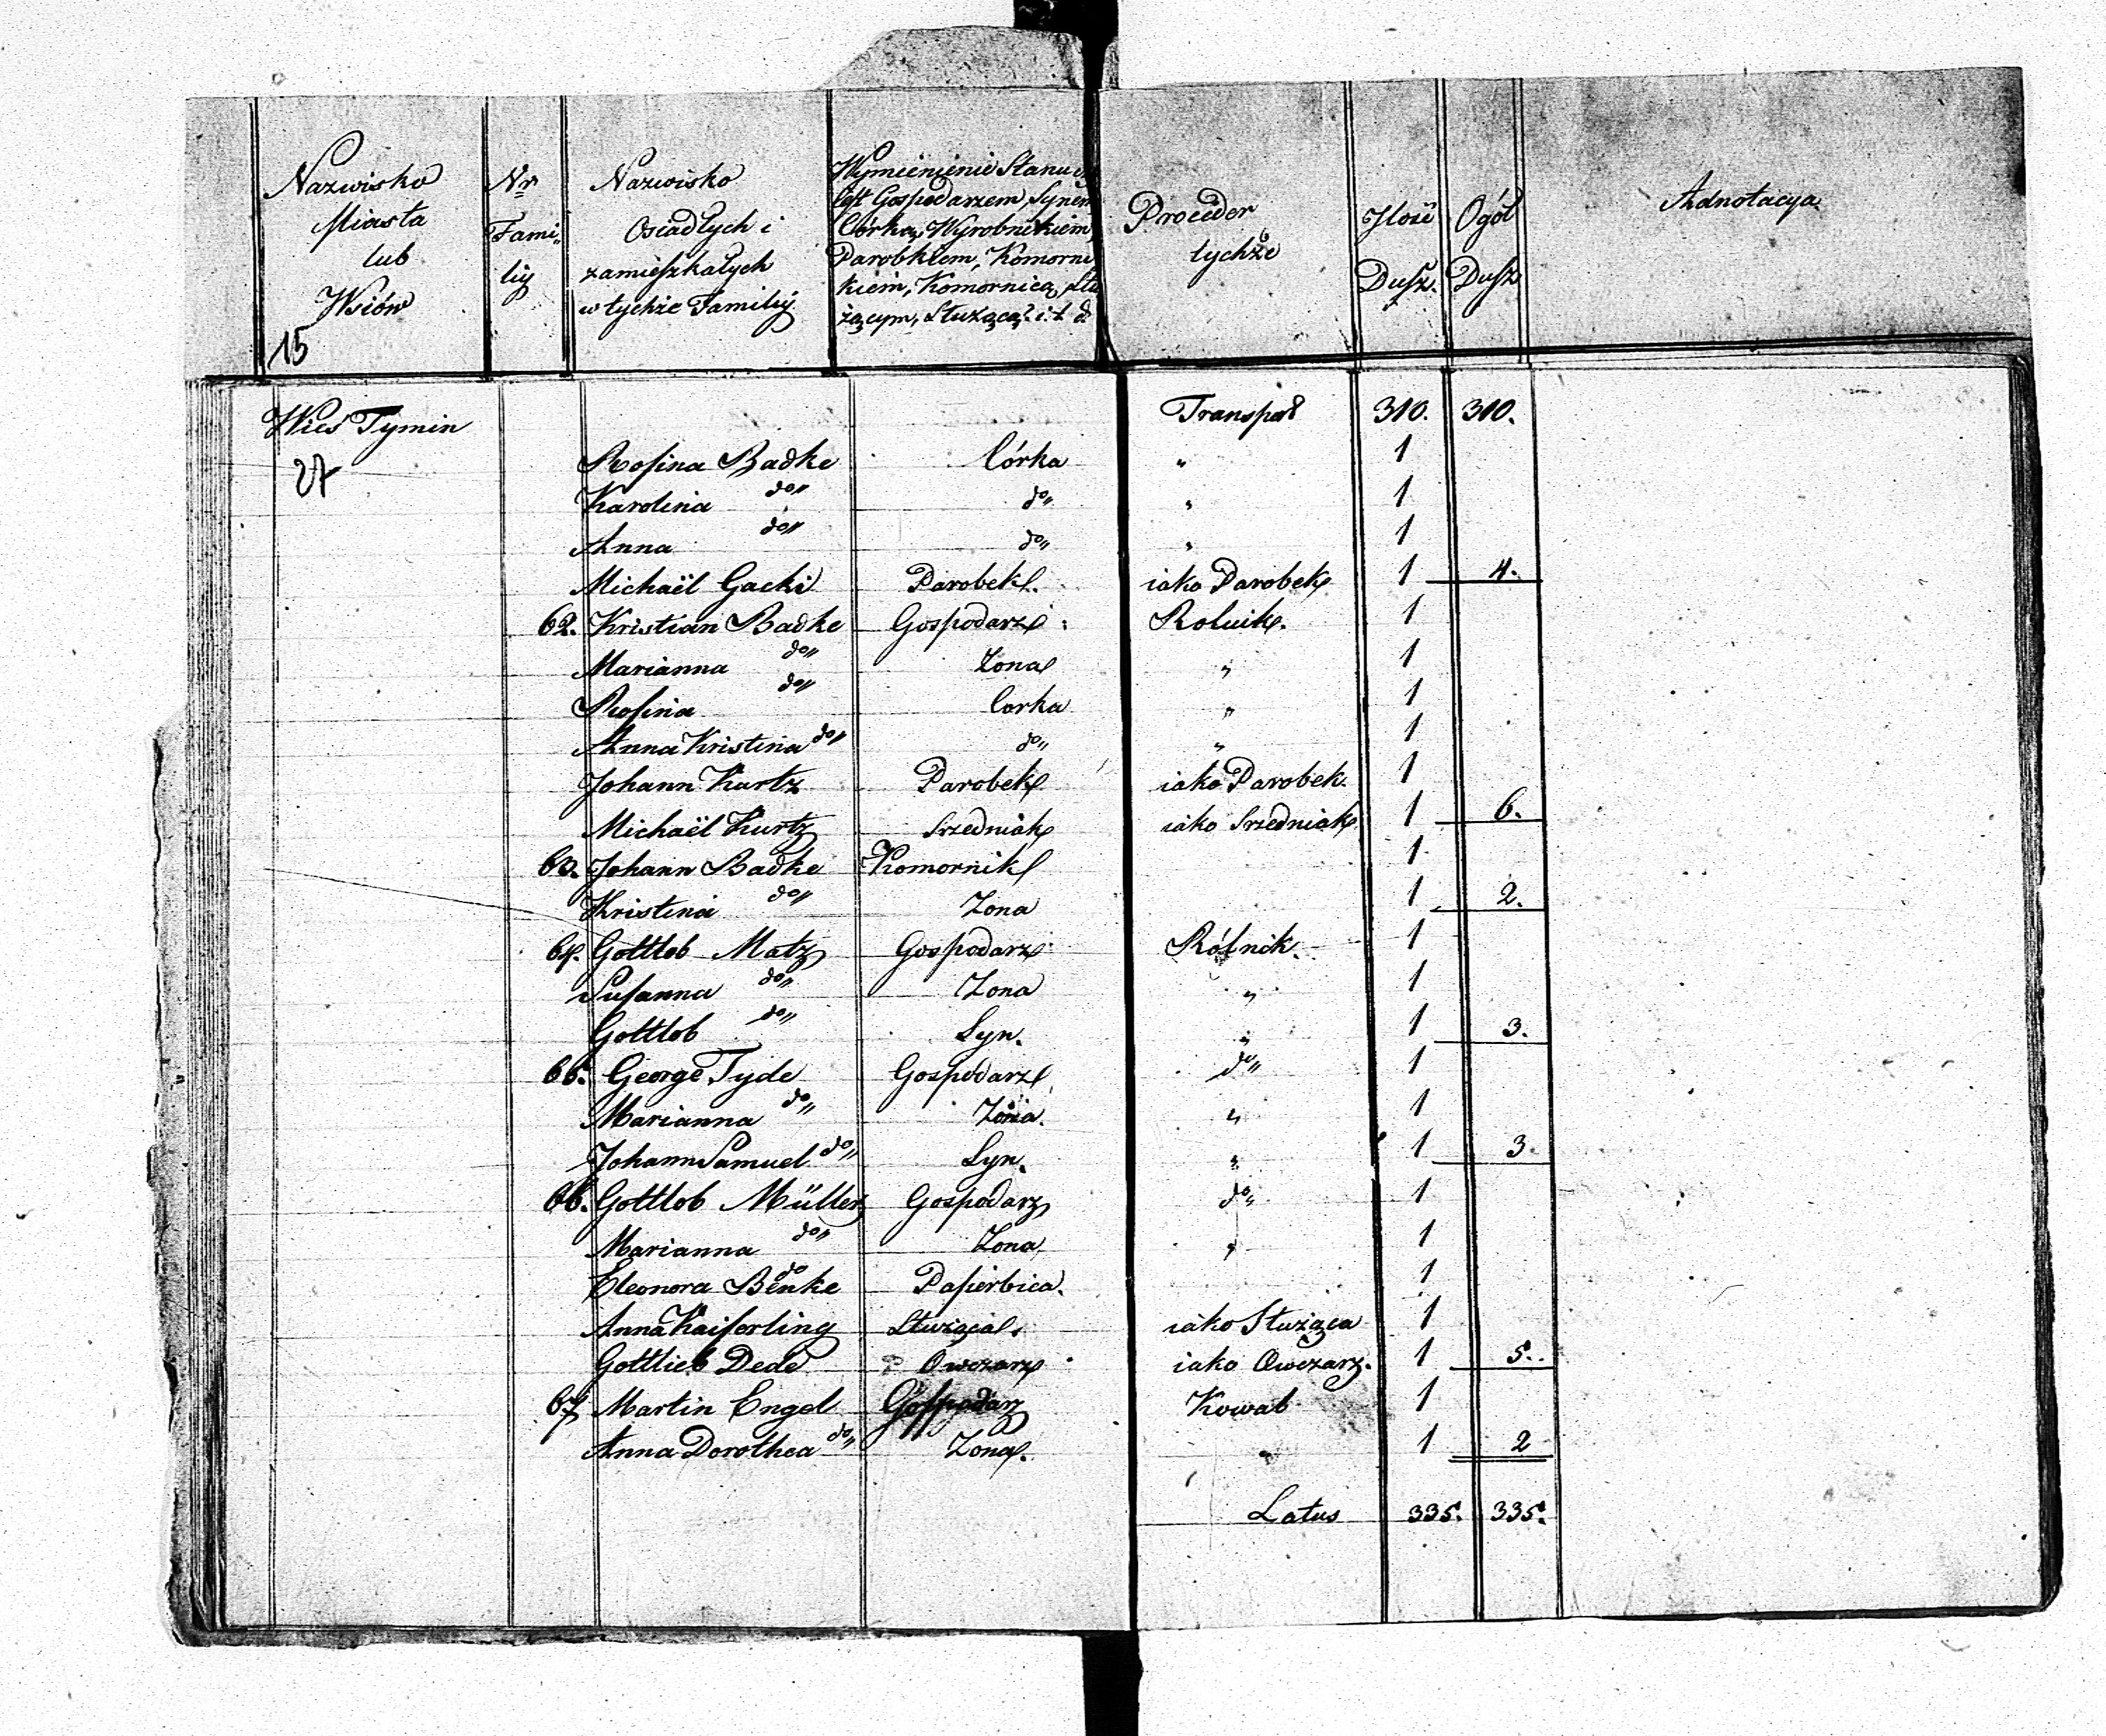 Nazwisko Miasta lub Wsiów
Nr Fami„ liy
Nazwisko Osiadłych i zamieszkałych w tychże Familiy
Wymienienie Stanu
jest Gospodarzem, Synem
Córką, Wyrobnikiem,
Parobkiem, Komorni
kiem, Komornicą, Słu
żącym, Służącą? i. t. d
Proceder tychże
Ilość Dusz.
Ogół Dusz
Adnotacya
15
Wieś Tymin Transport 310. 310.
27
Rosina Badke Córka " 1
Karolina do„ do„ " 1
Anna do„ do„ " 1
Michaël Gacki Parobek. iako Parobek 1 4.
62. Kristian Badke Gospodarz Rolnik. 1
Marianna do„ Zona " 1
Rosina do„ Corka " 1
Anna Kristina do„ do„ " 1
Johann Kurtz Parobek iako Parobek. 1
Michaël Kurtz Srzedniak iako Srzedniak 1 6.
63. Johann Badke Komornik 1
Kristina do„ Zona 1 2.
64. Gottlob Matz Gospodarz Rólnik. 1
Susanna do„ Zona " 1
Gottlob do„ Syn. " 1 3.
65. George Tyde Gospodarz do„ 1
Marianna do„ Zona. " 1
Johann Samuel do„ Syn. " 1 3.
66. Gottlob Müller Gospodarz do„ 1
Marianna do„ Zona " 1
Eleonora Benke do Pasierbica. 1
Anna Kaiserling Służąca. iako Służąca 1
Gottlieb Dede Owczarz iako Owczarz. 1 5.
67 Martin Engel Gospodarz Kowal 1
Anna Dorothea do„ Zona. " 1 2
Latus 335. 335.